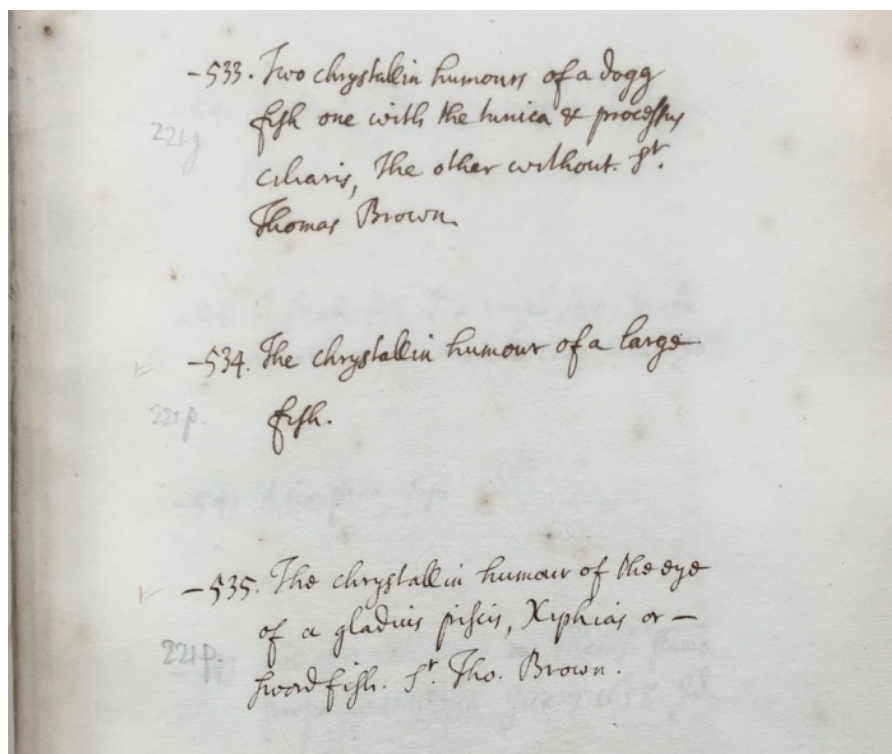 -533. Two chrystallin humours of a dogg
221g
fish one with the tunica & processus
ciliaris, The other without. Sr.
Thomas Brown
-534. The chrystallin humour of a large
221p.
fish.
-535. The chrystallin humour of the eye
of a gladius piscis, Xiphias or -
221p.
sword fish. Sr. Tho. Brown.